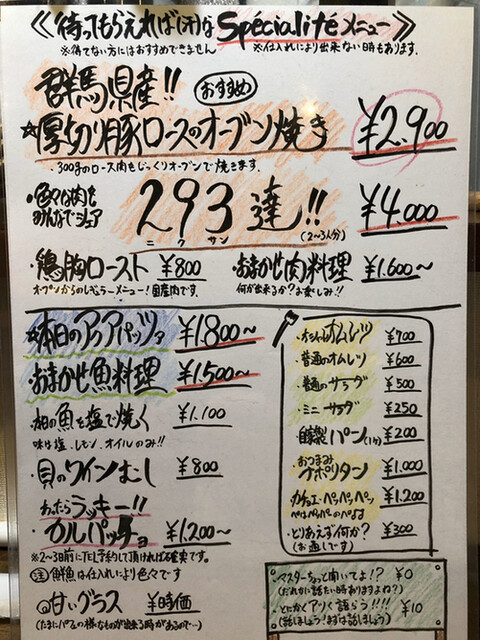 ≪待ってもらえれば(オ)な Spécialitéメニュー≫
※待てない方にはおすすめできません ※仕入れにより出来ない時もあります.
群馬県産!! おすすめ
☆厚切り豚ロースのオーブン焼き ¥2.900
・300gのロース肉をじっくりオーブンで焼きます.
・色々な肉を
みんなでシェア
293達!! ¥4.000
ニクサン (2〜3人分)
・鶏胸ロースト ¥800
オープンからのレギュラーメニュー!国産肉です.
・おまかせ(肉)料理 ¥1.600〜
何が出来るか?お楽しみ!!
☆本日のアクアパッツァ ¥1.800〜
・おまかせ魚料理 ¥1.500〜
・本日の魚を塩で焼く ¥1.100
味は塩.レモン.オイルのみ!!
・貝のワインむし ¥800
あったらラッキー!!
・カルパッチョ ¥1200〜
※2〜3日前にTEL予約して頂ければ確実です。
(注)鮮魚は仕入れにより色々です
◎甘いグラス ¥時価
(たまにパフェの様なものが出来る時があるので…)
オムレツ ¥700
・普通のオムレツ ¥600
・普通のサラダ ¥500
・ミニサラダ ¥250
・自家製パン(1ケ) ¥200
・おつまみ
ナポリタン ¥1.000
・カチョエ・ペッペッペッ
ペはペッペのペよ ¥1.200
・とりあえず何か? ¥300
(お通しです)
・マスターちょっと聞いてよ!? ¥0
(だれかに話したい時ありますよね?)
・とにかくアツく語ろう!!!! ¥10
(話しましょう!まずは話しましょう)